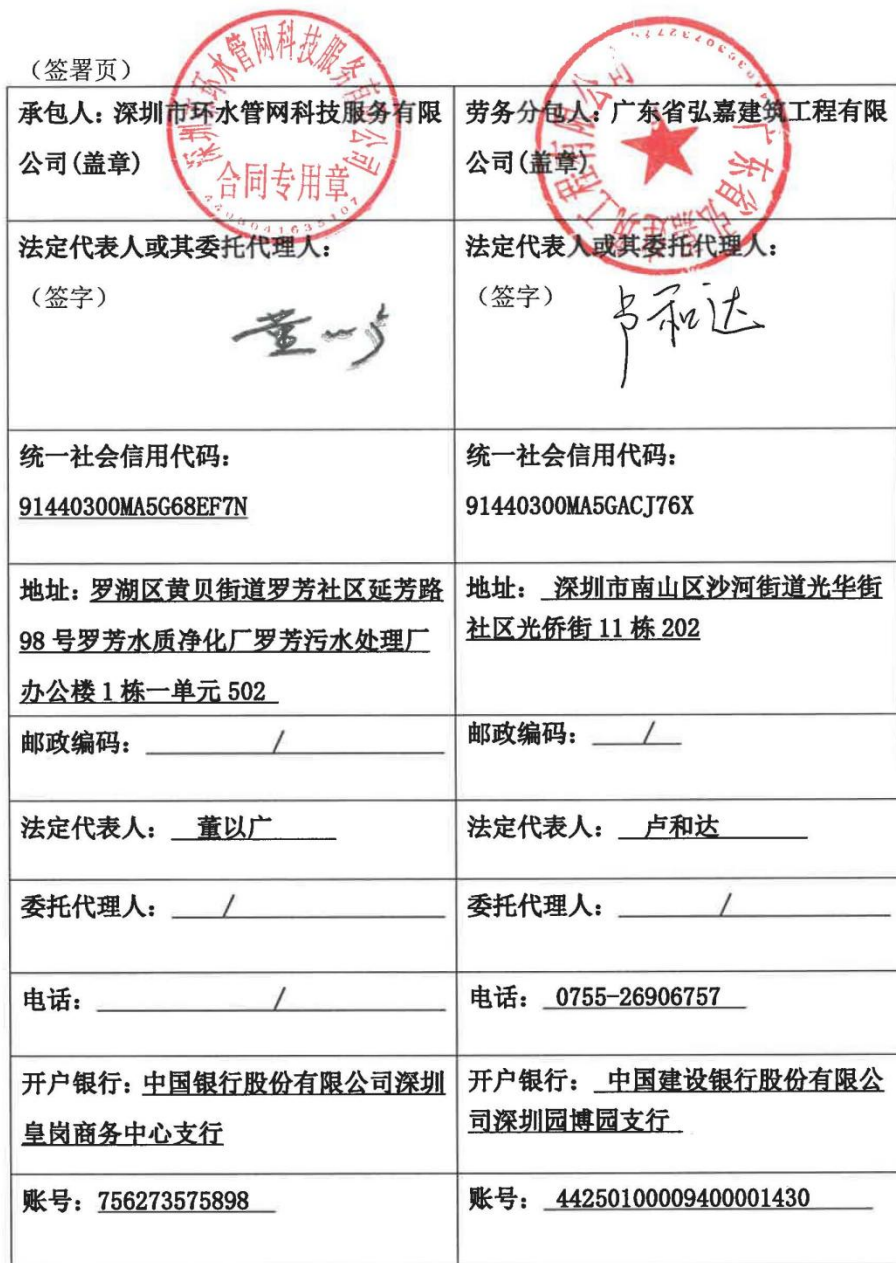 （签署页）
承包人：深圳市环水管网科技服务有限
公司(盖章)
深圳市环水管网科技服务有限公司
合同专用章
4403041635107
劳务分包人：广东省弘嘉建筑工程有限
公司(盖章)
广东省弘嘉建筑工程有限公司
法定代表人或其委托代理人：
（签字）
法定代表人或其委托代理人：
（签字）
卢和达
统一社会信用代码：
91440300MA5G68EF7N
统一社会信用代码：
91440300MA5GACJ76X
地址：罗湖区黄贝街道罗芳社区延芳路
98 号罗芳水质净化厂罗芳污水处理厂
办公楼 1 栋一单元 502
地址： 深圳市南山区沙河街道光华街
社区光侨街 11 栋 202
邮政编码： /
邮政编码： /
法定代表人： 董以广
法定代表人： 卢和达
委托代理人： /
委托代理人： /
电话： /
电话： 0755-26906757
开户银行：中国银行股份有限公司深圳
皇岗商务中心支行
开户银行： 中国建设银行股份有限公
司深圳园博园支行
账号：756273575898
账号： 44250100009400001430